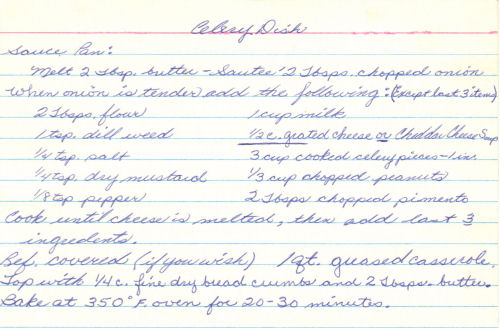 Celery Dish
Sauce Pan:
Melt 2 Tbsp. butter - Sautee 2 Tbsps. chopped onion
When onion is tender add the following: (Except last 3 items)
2 Tbsps. flour 1 cup milk
1 tsp. dill weed 1/2 c. grated cheese or Cheddar Cheese Soup
1/4 tsp. salt 3 cup cooked celery pieces - 1 in.
1/4 tsp. dry mustard 1/3 cup chopped peanuts
1/8 tsp pepper 2 Tbsps chopped pimento
Cook until cheese is melted, then add last 3
ingredients.
Ref. covered (if you wish) 1 qt. greased casserole.
Top with 1/4 c. fine dry bread crumbs and 2 Tbsps. butter.
Bake at 350° F. oven for 20-30 minutes.